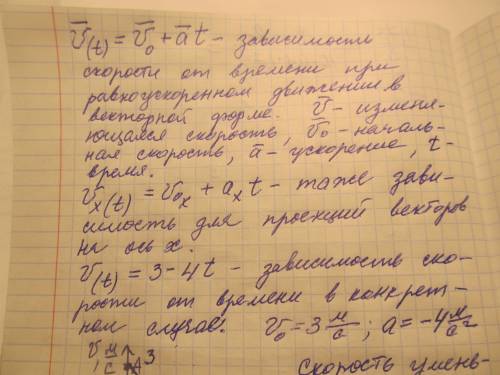 v̅(t) = v̅₀ + a̅ t - зависимость
скорости от времени при
равноускоренном движении в
векторной форме. v̅ - изменя-
ющаяся скорость, v̅₀ - началь-
ная скорость, a̅ - ускорение, t -
время.
vₓ(t) = v₀ₓ + aₓ t - таже зави-
симость для проекций векторов
на ось x.
v(t) = 3 - 4t - зависимость ско-
рости от времени в конкрет-
ном случае. v₀ = 3 м/с ; a = -4 м/с²
v, м/с 3
скорость умень-